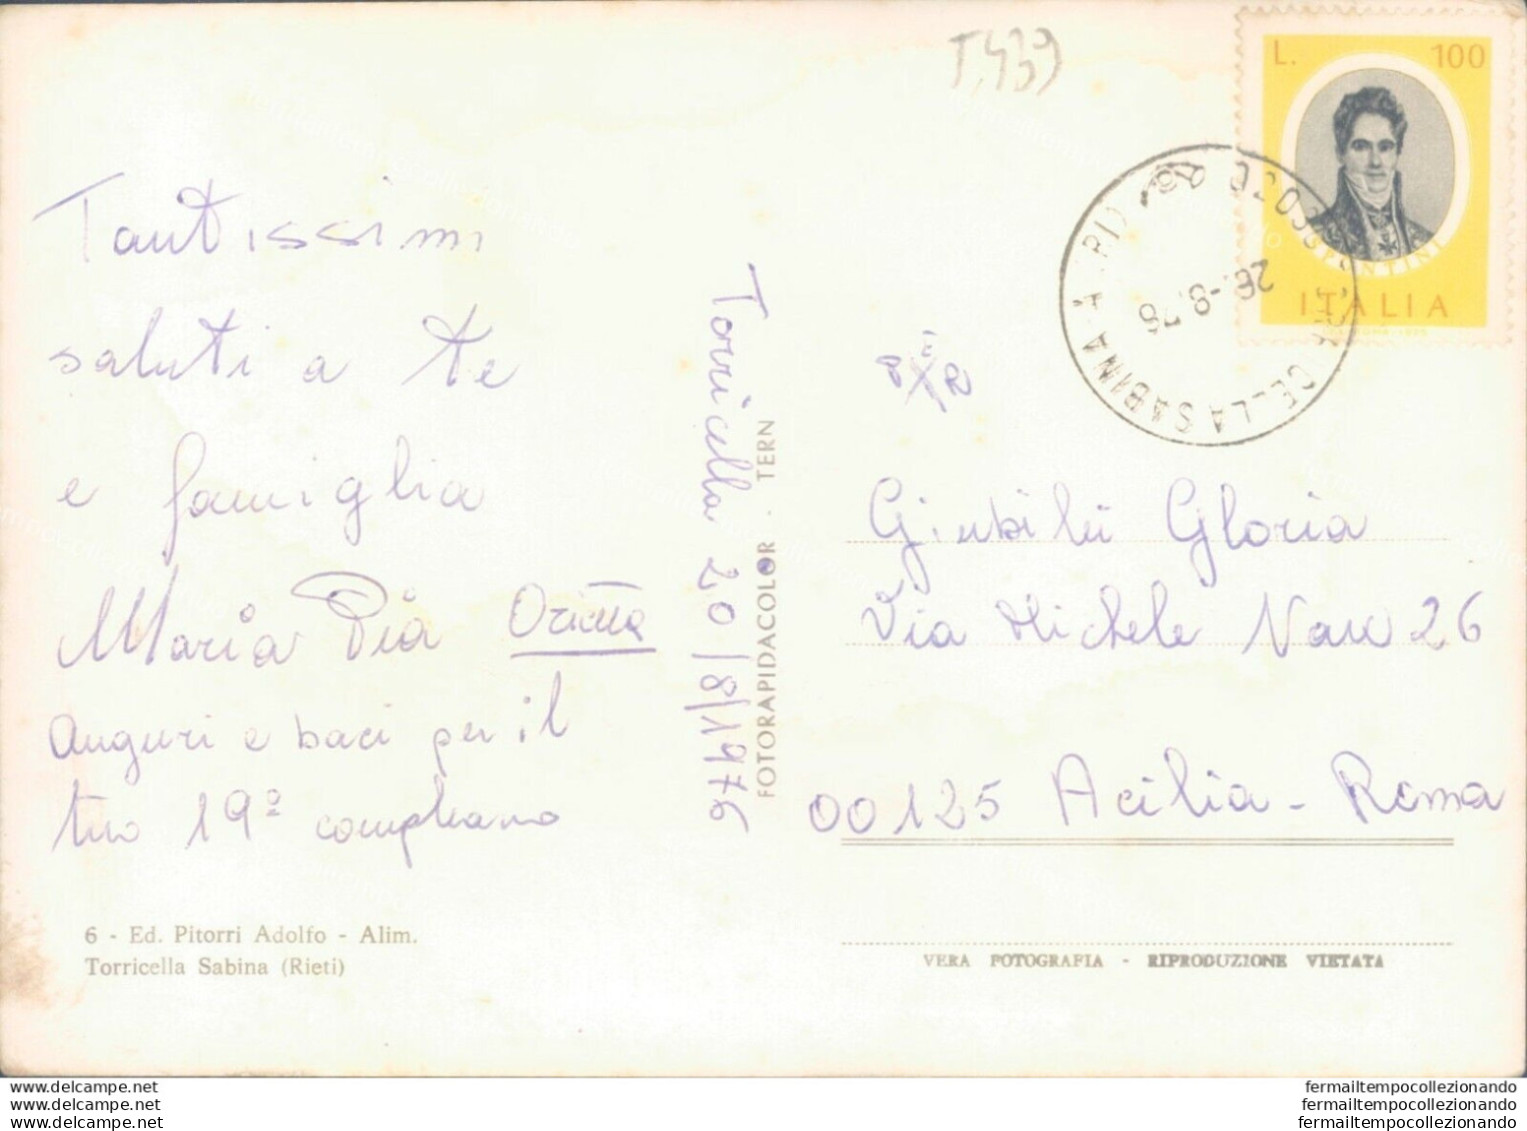 T.439
L. 100
SPONTINI
ITALIA
26.-8.76
CELLA SABINA
Tantissimi
saluti a te
e famiglia
Maria Pia
auguri e baci per il
tuo 19º compleano
Torricella 20/8/1976
FOTORAPIDACOLOR . TERN
Gloria
Via Michele 26
00125 Acilia - Roma
6 - Ed. Pitorri Adolfo - Alim.
Torricella Sabina (Rieti)
VERA FOTOGRAFIA - RIPRODUZIONE VIETATA
www.delcampe.net
www.delcampe.net
www.delcampe.net
fermailtempocollezionando
fermailtempocollezionando
fermailtempocollezionando